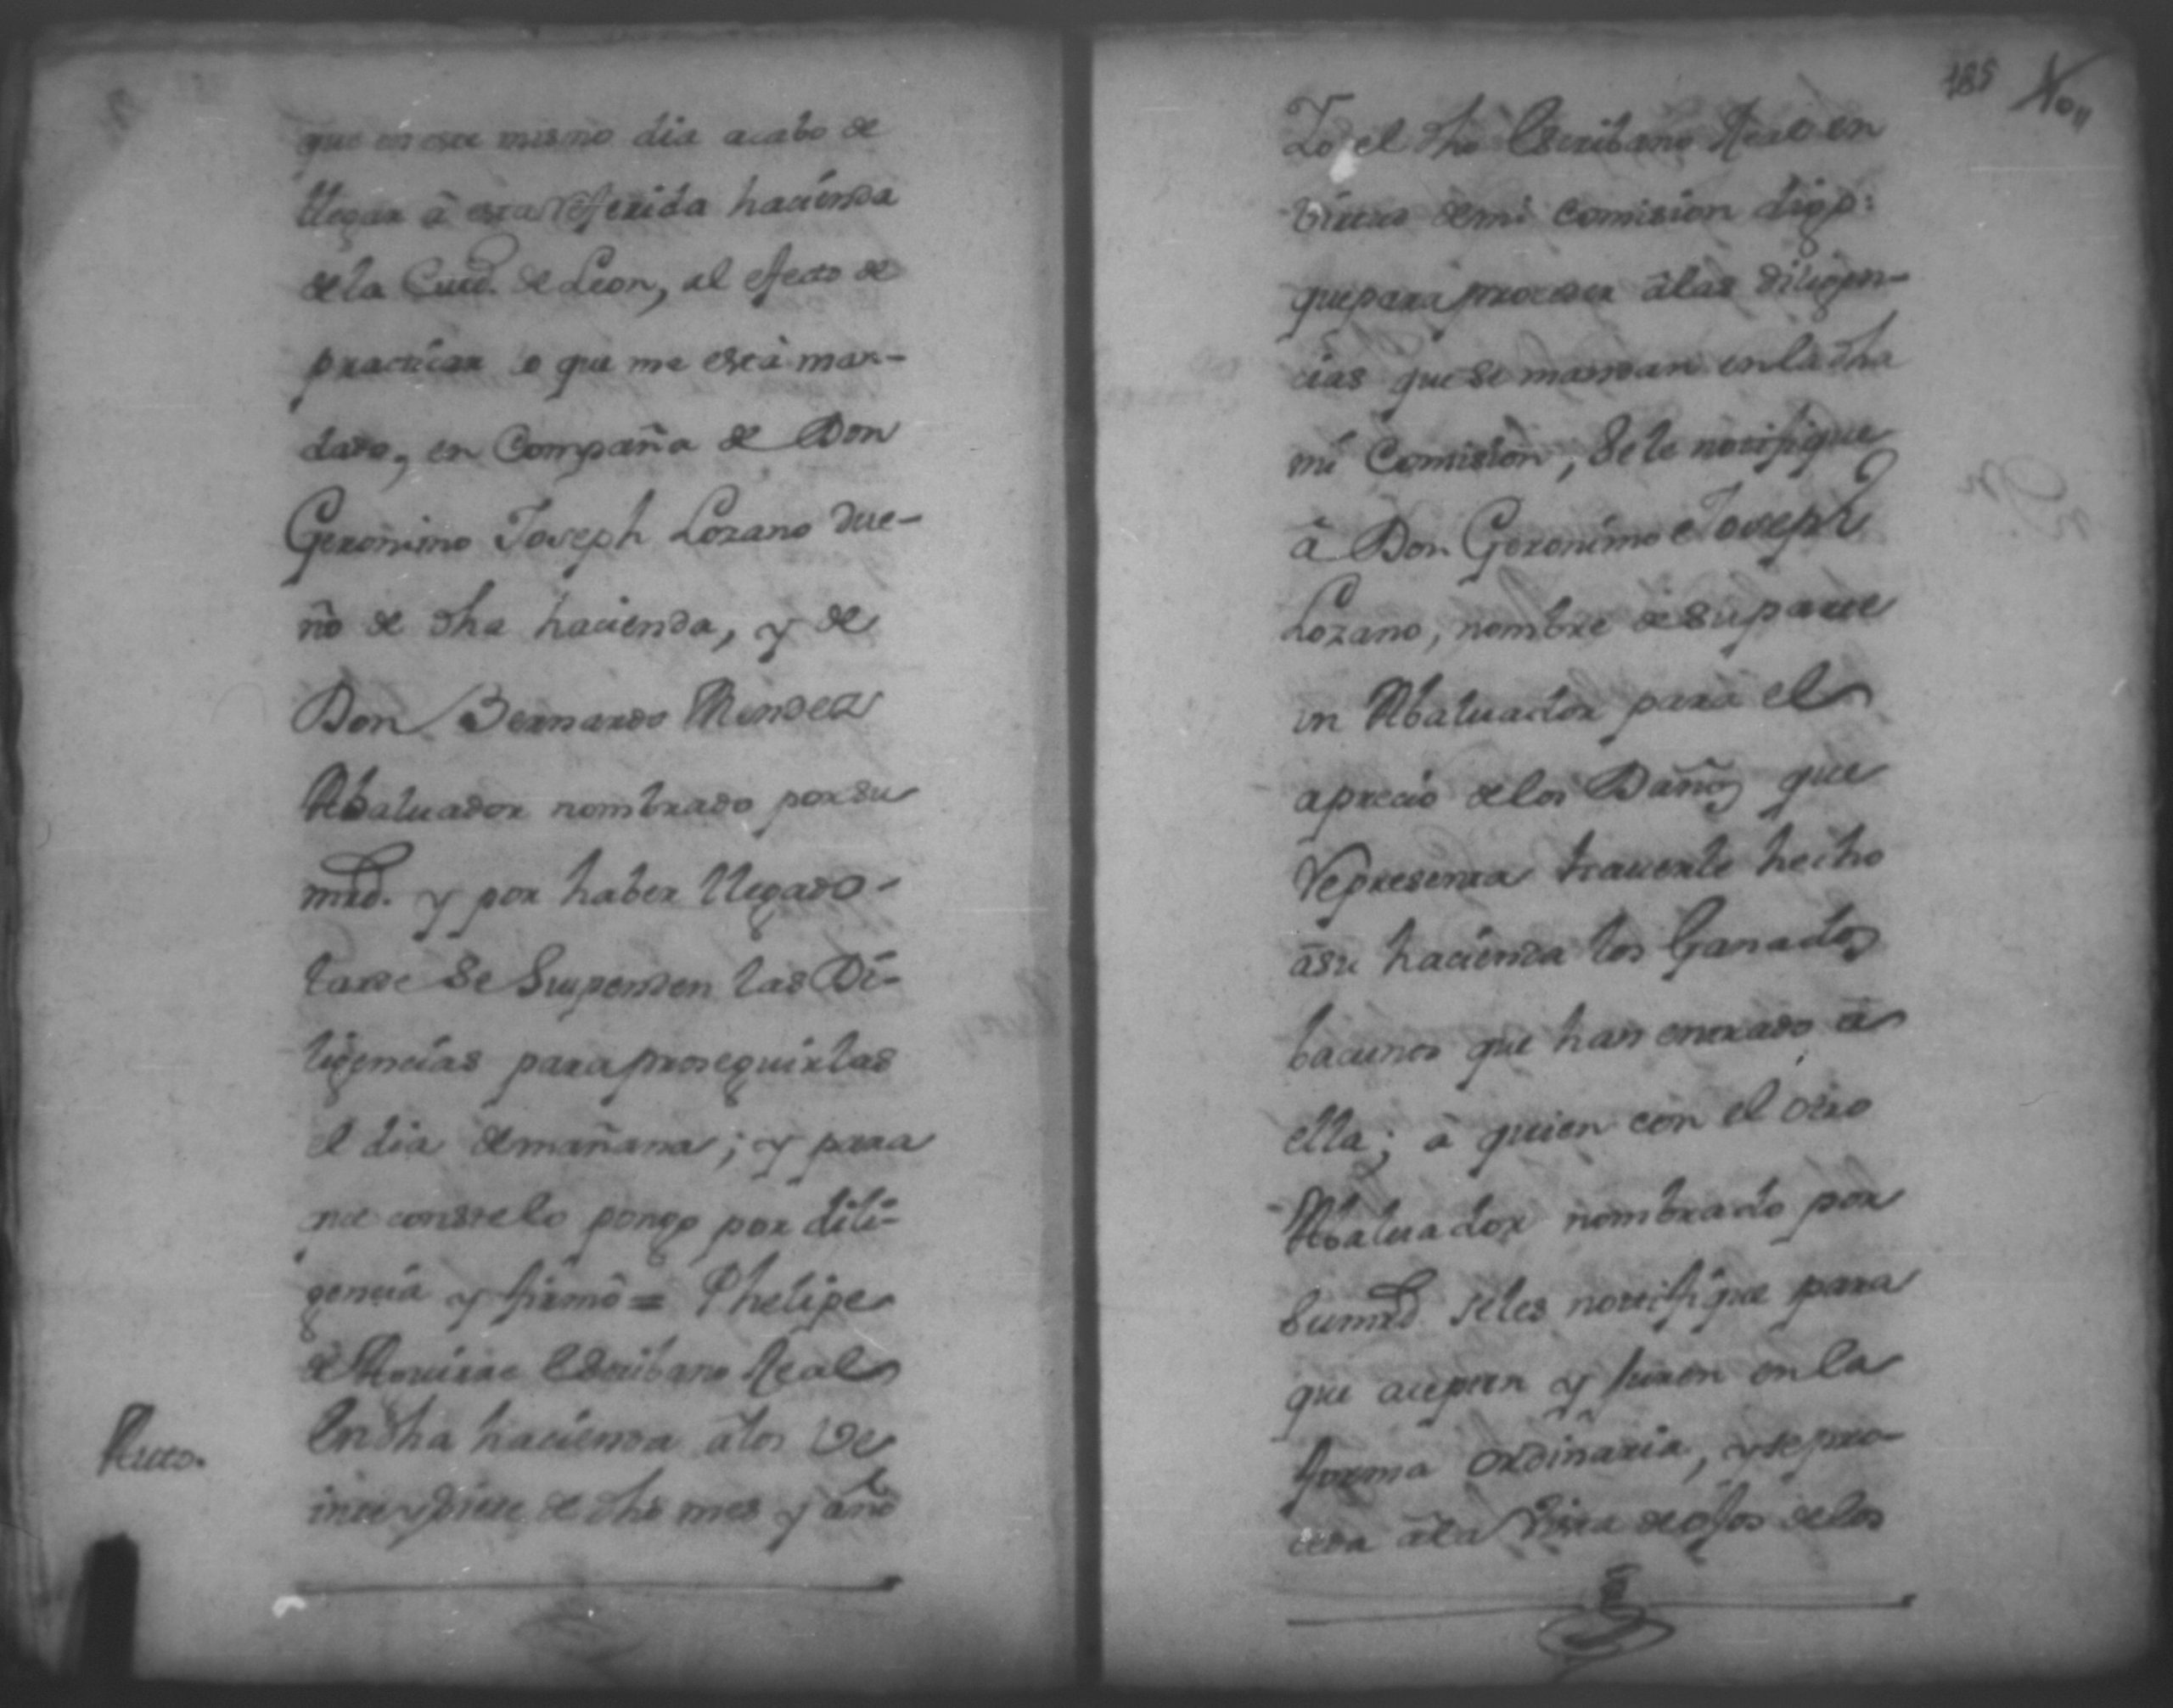 que en este mismo dia acabo de
llegar â esta referida hacienda
de la Ciud. de Leon, al efecto de
practicar lo que me está man-
dado, en Compaña de Don
Geronimo Joseph Lozano due-
ño de dha hacienda, y de
Don Bernardo Mendez
Abaluador nombrado por su
mrd. y por haber llegado
tarde se Suspenden las Di-
ligencias para proseguirlas
el dia de mañana; y para
que conste lo pongo por dili-
gencia y firmô = Phelipe
de Escribano Real
Auto.
En dha hacienda â los ve
inte y siete de dho mes y año
185
Yo el dho Escribano Real en
virtud de mi comision digo:
que para proceder â las diligen-
cias que se mandan en la dha
mi Comision, Se le notifique
â Don Geronimo Joseph
Lozano, nombre de su parte
un Abaluador para el
aprecio de los Daños que
representa haverle hecho
â su hacienda los Ganados
bacunos que han entrado â
ella; â quien con el otro
Abaluador nombrado por
Su mrd se les notifique para
que acepten y juren en la
forma ordinaria, y se pro-
ceda â la Vista de ojos de los